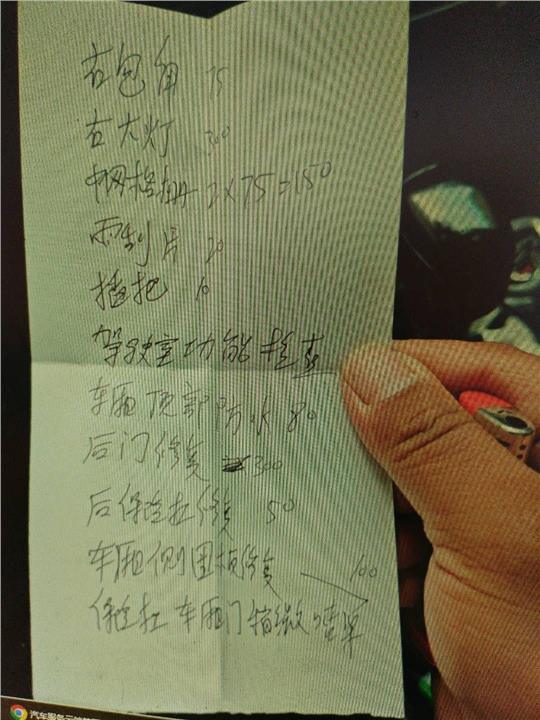 右包角 75
右大灯 300
中网格栅 2×75=150
雨刮片 20
摇把 10
驾驶室功能检查
车厢顶部防水 80
后门修复 300
后保险杠修复 50
车厢侧围板修复 100
保险杠 车厢门
汽车服务云